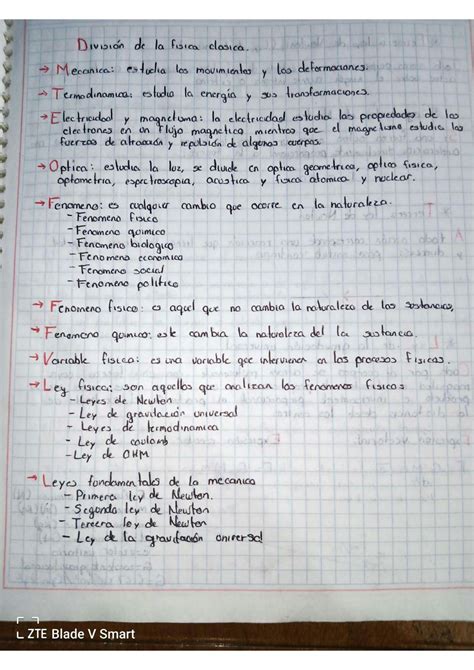 División de la fisica clasica.
→ Mecanica: estudia los movimientos y las deformaciones.
→ Termodinamica: estudia la energía y sus transformaciones.
→ Electricidad y magnetismo: la electricidad estudia las propiedades de los
electrones en un flujo magnetico mientras que el magnetismo estudia las
fuerzas de atracción y repulsión de algunos cuerpos.
→ Optica: estudia la luz, se divide en optica geometrica, optica fisica,
optometria, espectroscopia, acustica y fisica atomica y nuclear.
→ Fenomeno: es cualquier cambio que ocurre en la naturaleza.
- Fenomeno fisico
- Fenomeno quimico
- Fenomeno biologico
- Fenomeno economico
- Fenomeno social
- Fenomeno politico
→ Fenomeno fisico: es aquel que no cambia la naturaleza de las sustancias,
→ Fenomeno quimico: este cambia la naturaleza del la sustancia.
→ Variable fisica: es una variable que intervienen en los procesos Fisicos.
→ Ley fisica: son aquellas que analizan los fenomenos fisicos
- Leyes de Newton
- Ley de gravitación universal
- Leyes de termodinamica
- Ley de coulomb
- Ley de OHM
→ Leyes fundamentales de la mecanica
- Primera ley de Newton.
- Segunda ley de Newton
- Tercera ley de Newton
- Ley de la gravitación universal
ZTE Blade V Smart